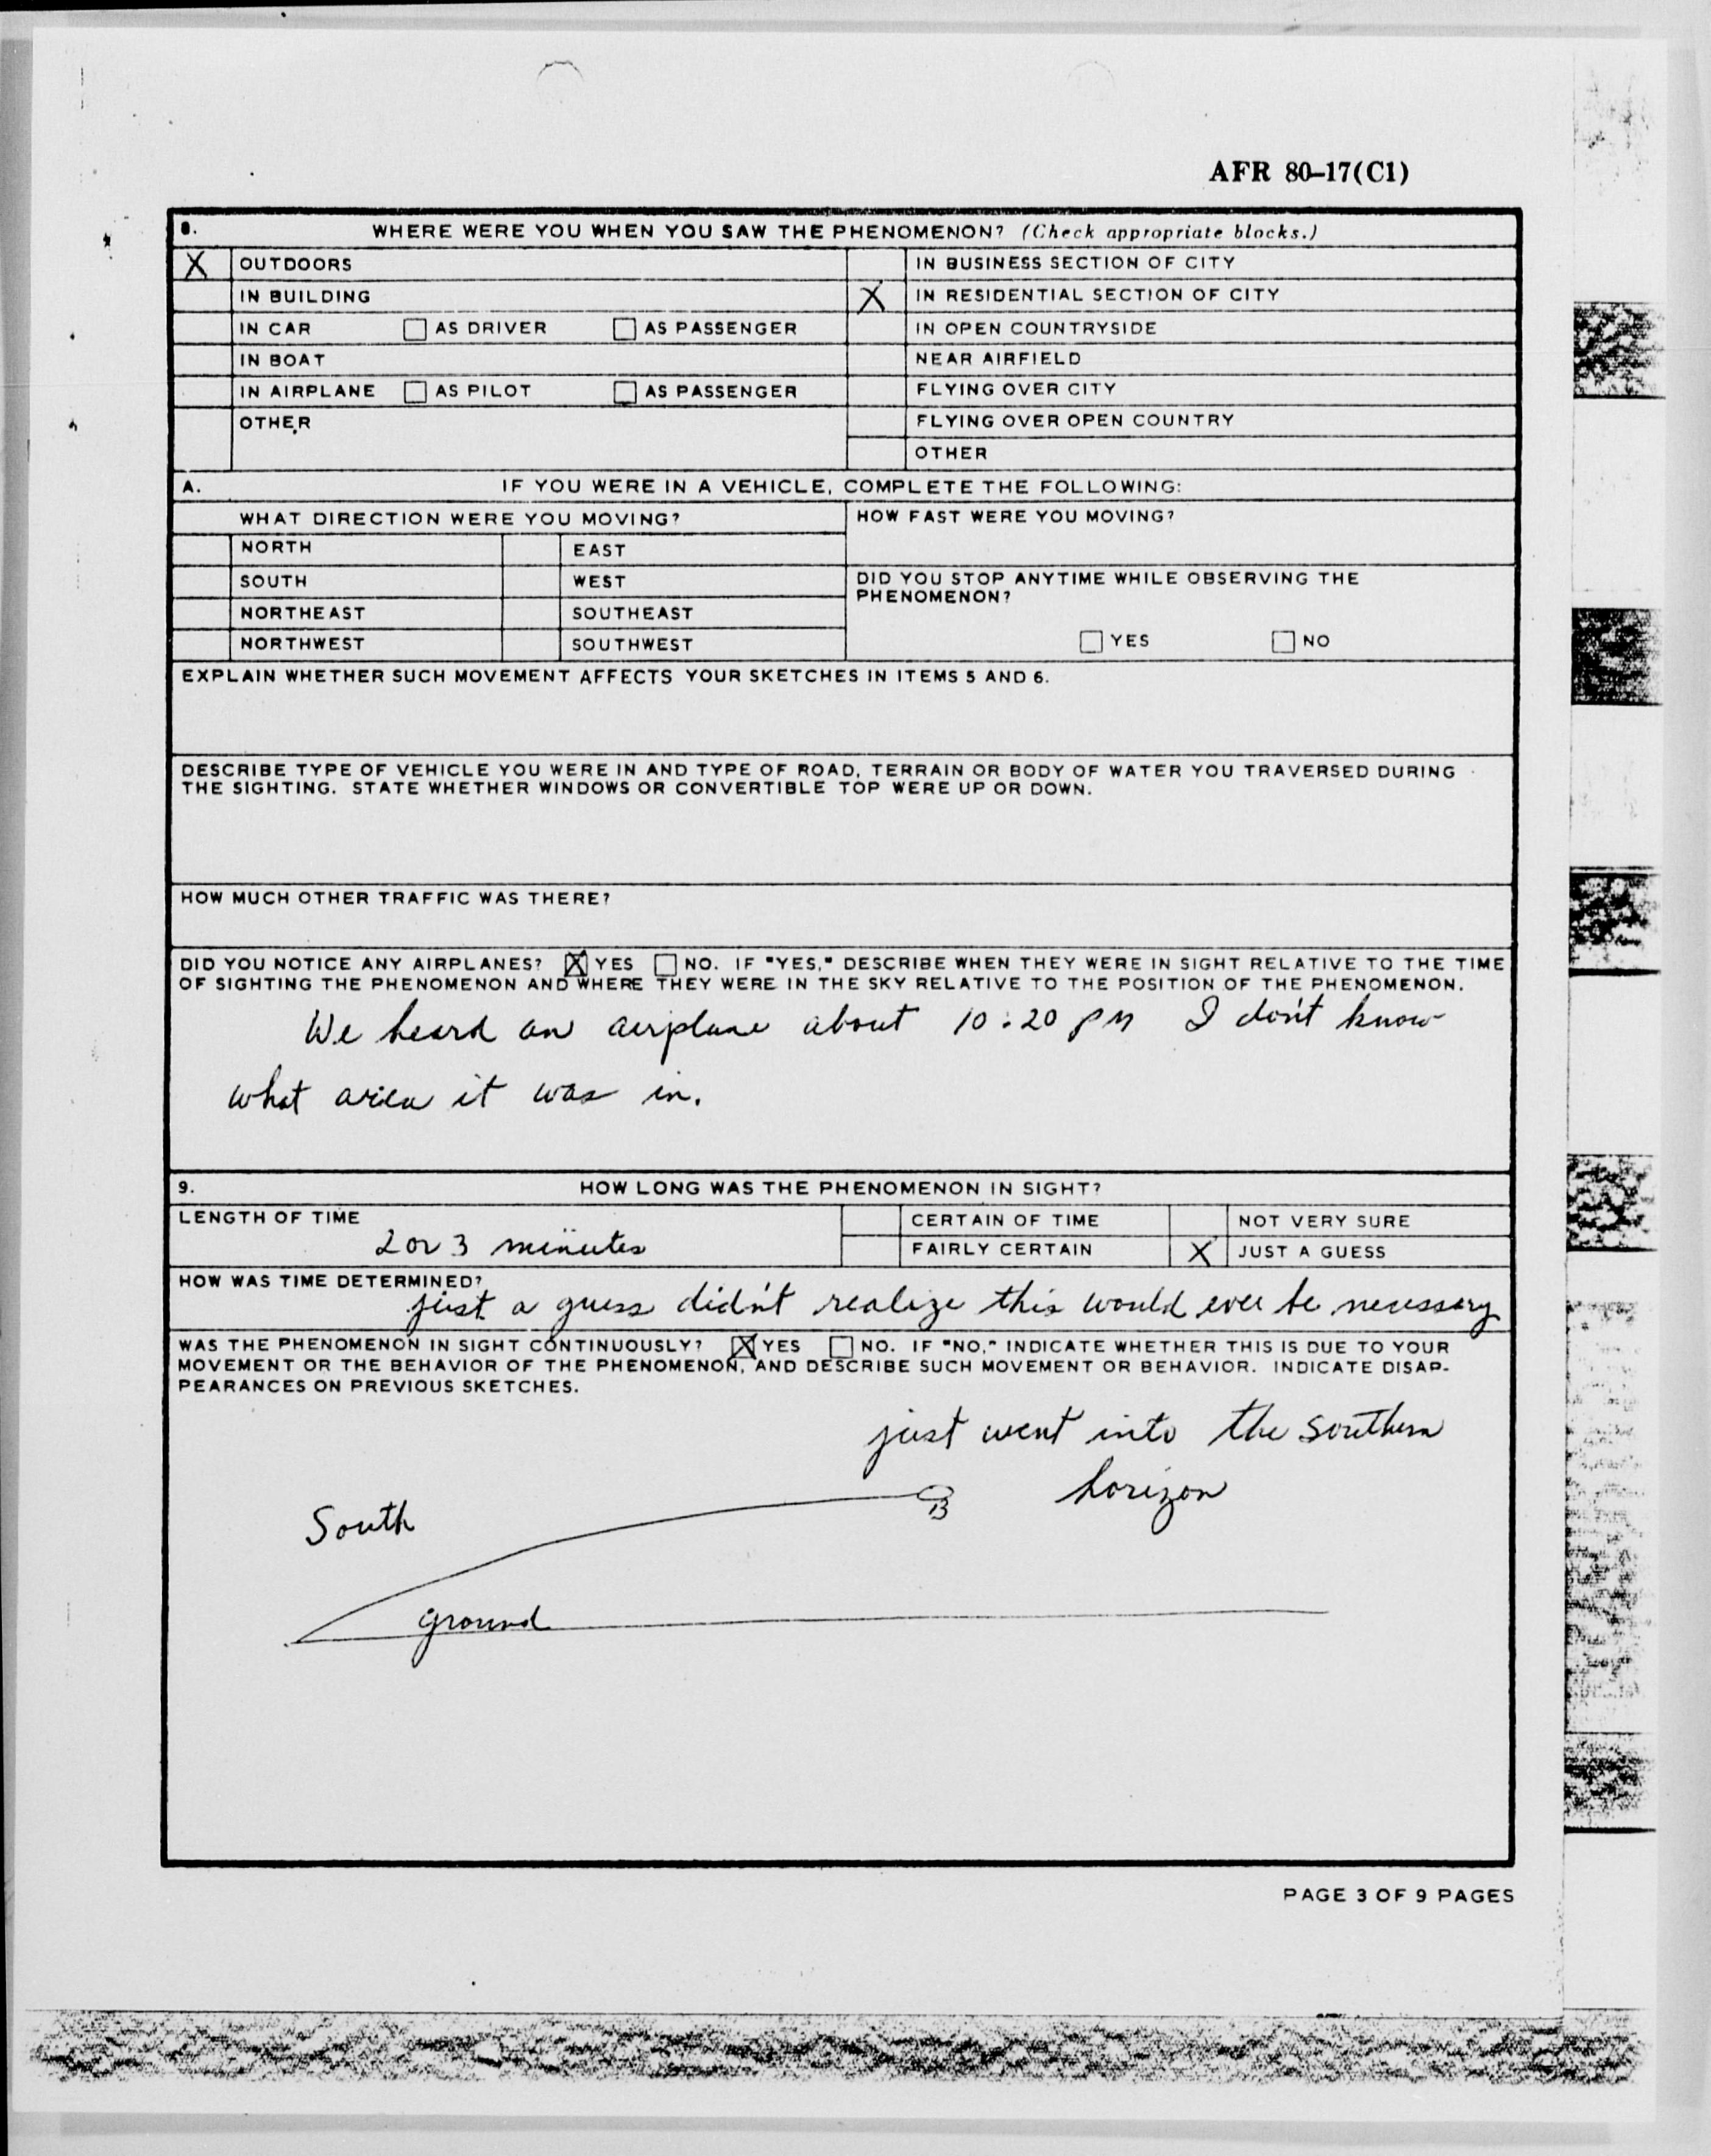 AFR 80–17(C1)
8. WHERE WERE YOU WHEN YOU SAW THE PHENOMENON? (Check appropriate blocks.)
X OUTDOORS
IN BUSINESS SECTION OF CITY
IN BUILDING
X IN RESIDENTIAL SECTION OF CITY
IN CAR ☐ AS DRIVER ☐ AS PASSENGER
IN OPEN COUNTRYSIDE
IN BOAT
NEAR AIRFIELD
IN AIRPLANE ☐ AS PILOT ☐ AS PASSENGER
FLYING OVER CITY
OTHER
FLYING OVER OPEN COUNTRY
OTHER
A. IF YOU WERE IN A VEHICLE, COMPLETE THE FOLLOWING:
WHAT DIRECTION WERE YOU MOVING?
HOW FAST WERE YOU MOVING?
NORTH EAST
SOUTH WEST
DID YOU STOP ANYTIME WHILE OBSERVING THE
PHENOMENON?
NORTHEAST SOUTHEAST
NORTHWEST SOUTHWEST
☐ YES ☐ NO
EXPLAIN WHETHER SUCH MOVEMENT AFFECTS YOUR SKETCHES IN ITEMS 5 AND 6.
DESCRIBE TYPE OF VEHICLE YOU WERE IN AND TYPE OF ROAD, TERRAIN OR BODY OF WATER YOU TRAVERSED DURING
THE SIGHTING. STATE WHETHER WINDOWS OR CONVERTIBLE TOP WERE UP OR DOWN.
HOW MUCH OTHER TRAFFIC WAS THERE?
DID YOU NOTICE ANY AIRPLANES? ☒ YES ☐ NO. IF "YES," DESCRIBE WHEN THEY WERE IN SIGHT RELATIVE TO THE TIME
OF SIGHTING THE PHENOMENON AND WHERE THEY WERE IN THE SKY RELATIVE TO THE POSITION OF THE PHENOMENON.
We heard an airplane about 10:20 PM I don't know
what area it was in.
9. HOW LONG WAS THE PHENOMENON IN SIGHT?
LENGTH OF TIME
CERTAIN OF TIME NOT VERY SURE
2 or 3 minutes
FAIRLY CERTAIN X JUST A GUESS
HOW WAS TIME DETERMINED?
just a guess didn't realize this would ever be necessary
WAS THE PHENOMENON IN SIGHT CONTINUOUSLY? ☒ YES ☐ NO. IF "NO," INDICATE WHETHER THIS IS DUE TO YOUR
MOVEMENT OR THE BEHAVIOR OF THE PHENOMENON, AND DESCRIBE SUCH MOVEMENT OR BEHAVIOR. INDICATE DISAP-
PEARANCES ON PREVIOUS SKETCHES.
just went into the southern
horizon
South
ground
PAGE 3 OF 9 PAGES